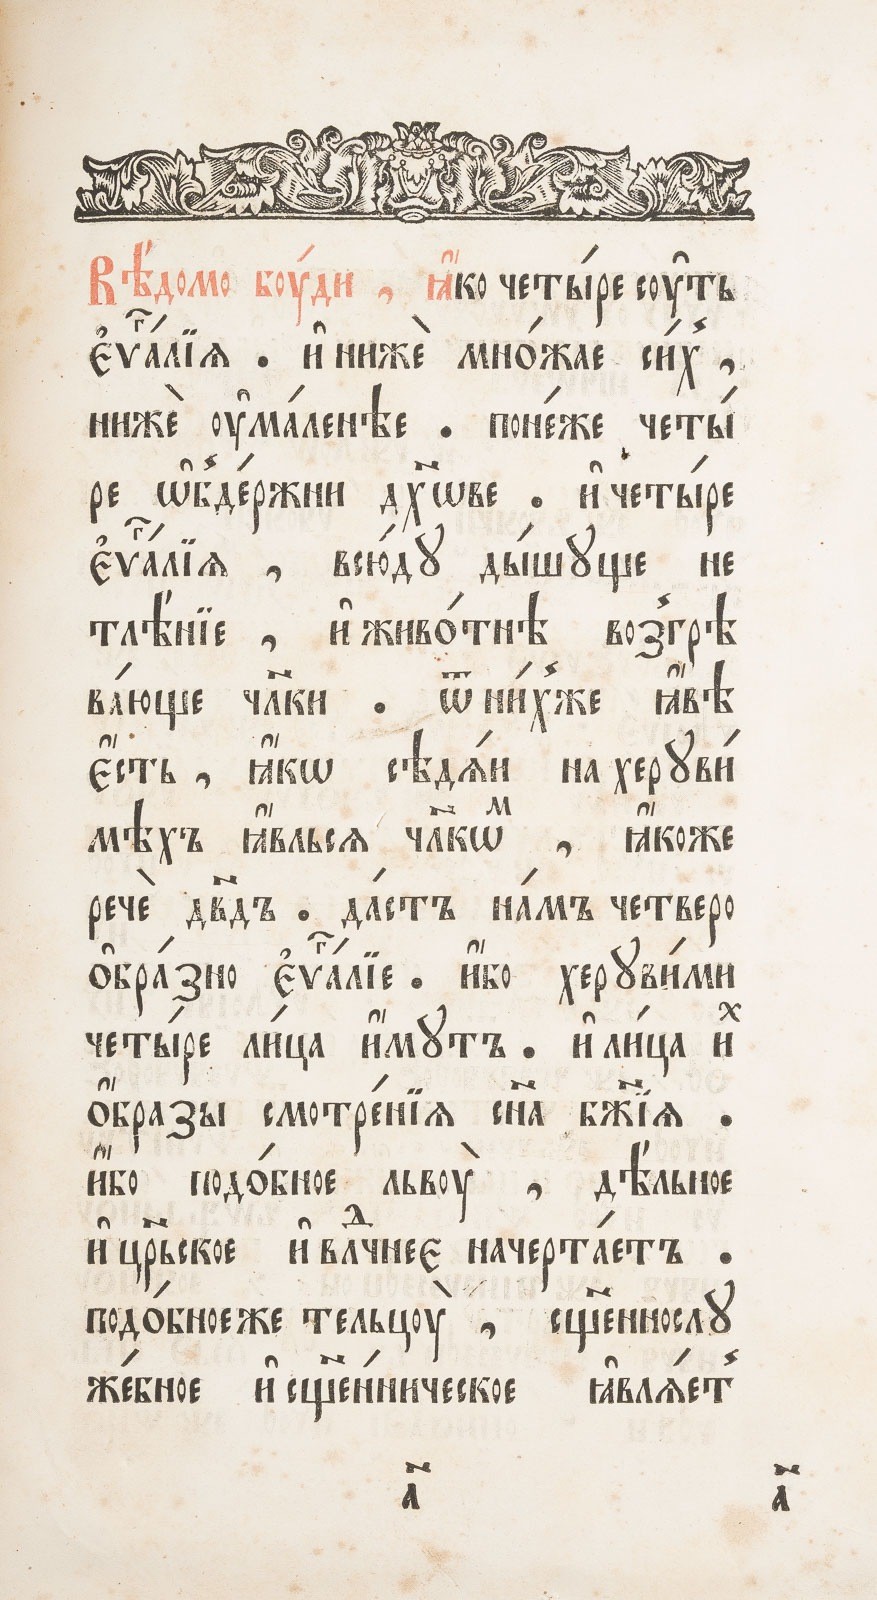 Вѣ́домо бꙋ́ди , ꙗ҆́ко четы́ре сꙋ́ть
є҆ѵⷢ҇а́лїѧ . и҆ нижѐ мно́жае си́хꙿ ,
нижѐ ᲂу҆ма́ленѣе . поне́же четы́
ре ѡ҆бꙿде́ржни дх҃ѡве . и҆ четы́ре
є҆ѵⷢ҇а́лїѧ , всю́дꙋ ды́шꙋще не
тлѣ́нїе , и҆ живо́тнѣ возꙿгрѣ
ва́юще чл҃ки . ѿ ни́хꙿже ꙗ҆́вѣ
є҆́сть , ꙗ҆́кѡ сѣдѧ́и на херꙋви́
мѣхъ ꙗ҆́вльсѧ чл҃кѡⷨ , ꙗ҆́коже
речѐ дв҃дъ . да́стъ на́мъ четверо
ѻ҆бра́зно є҆ѵⷢ҇а́лїе . и҆́бо херꙋви́ми
четы́ре ли́ца и҆́мꙋтъ . и҆ ли́ца иⷯ
ѻ҆́бразы смотре́нїѧ сн҃а бж҃їѧ .
и҆́бо подо́бное львоу̀ , дѣ́льное
и҆ цр҃ьское и҆ влⷣчнеє начерта́етъ .
подо́бноеже тельцоу̀ , сщ҃еннослꙋ
же́бное и҆ сщ҃е́нническое ꙗ҆влѧ́етꙿ
а҃ а҃